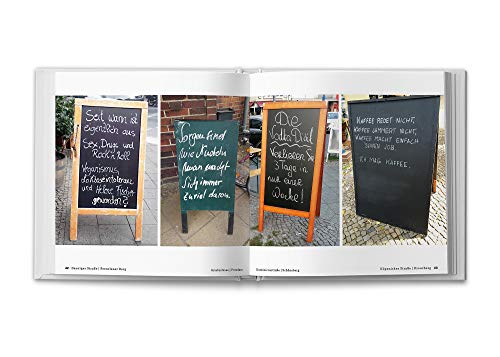 Seit wann ist
eigentlich aus
Sex, Drugs und
Rock'n Roll
Veganismus,
Laktoseintoleranz
und Helene Fischer
geworden?
Morgen sind
wie Nudeln
man macht
sich immer
zuviel davon.
Die
Vodka Diät
Verlieren Sie
3 Tage in
nur einer
Woche!
KAFFEE REDET NICHT,
KAFFEE JAMMERT NICHT,
KAFFEE MACHT EINFACH
SEINEN JOB.
ICH MAG KAFFEE.
Danziger Straße | Prenzlauer Berg